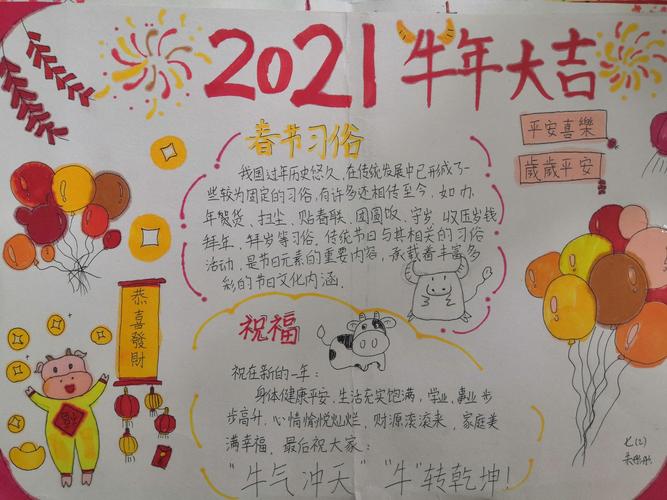 2021 牛年大吉
平安喜樂
歲歲平安
春节习俗
我国过年历史悠久,在传统发展中已形成了一
些较为固定的习俗,有许多还相传至今,如办
年货、扫尘、贴春联、团圆饭、守岁、收压岁钱
拜年、拜岁等习俗。传统节日与其相关的习俗
活动,是节日元素的重要内容,承载着丰富多
彩的节日文化内涵。
恭喜發財
祝福
祝在新的一年:
身体健康平安,生活充实饱满,学业,事业步
步高升,心情愉悦灿烂,财源滚滚来,家庭美
满幸福,最后祝大家:
“牛气冲天”“牛”转乾坤!
七(2)